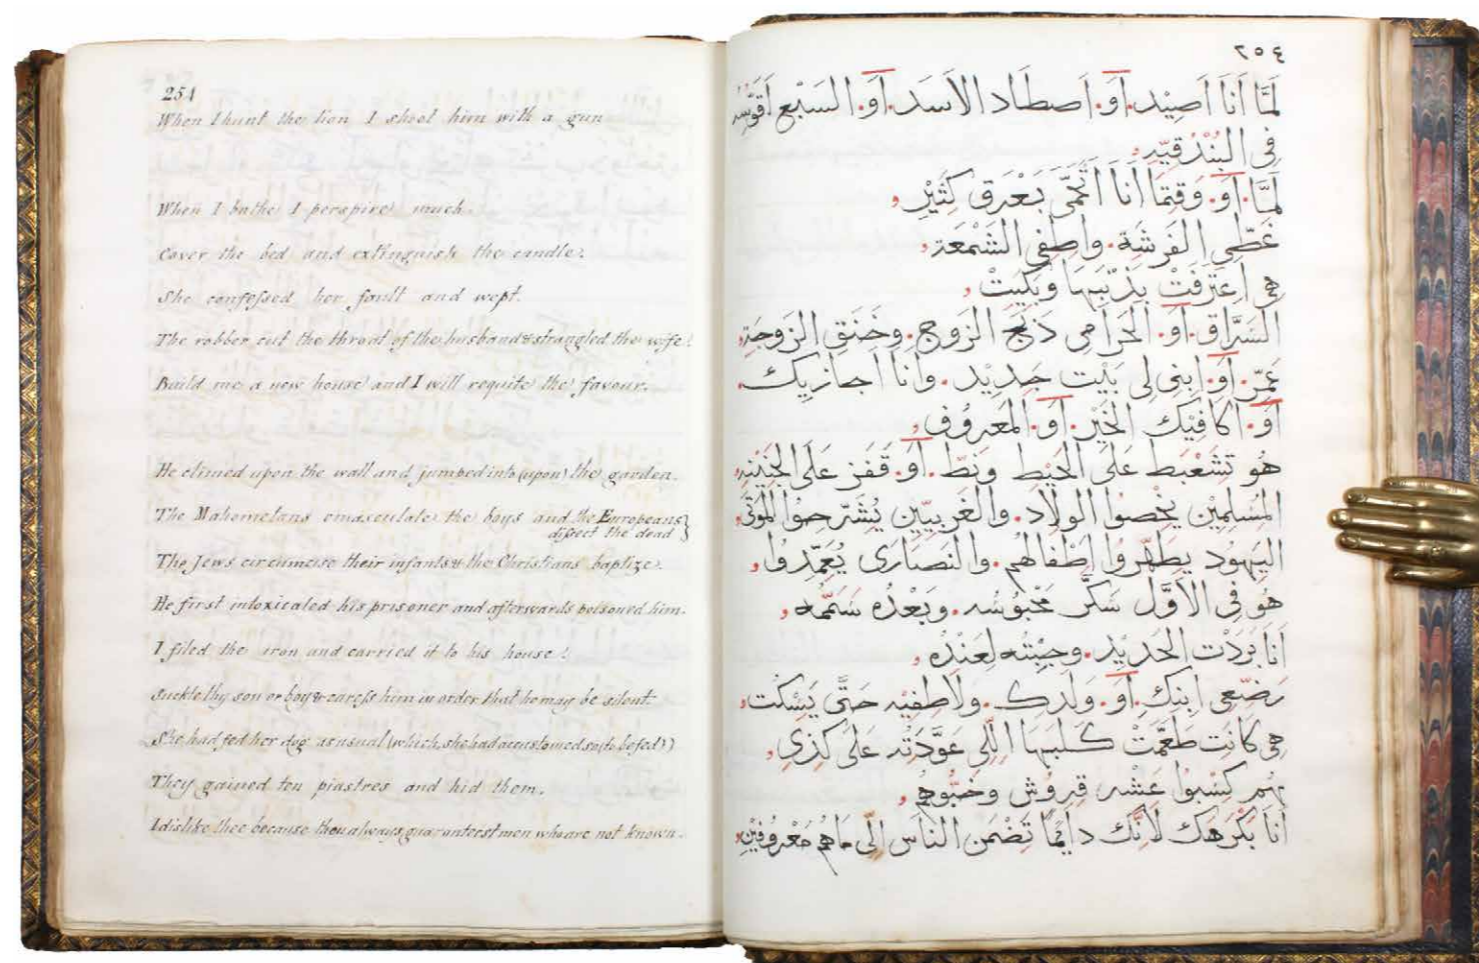 254
When I hunt the lion I shoot him with a gun
When I bathe I perspire much.
Cover the bed and extinguish the candle.
She confessed her fault and wept.
The robber cut the throat of the husband & strangled the wife!
Build me a new house and I will requite the favour.
He climed upon the wall and jumped into (upon) the garden.
The Mahometans emasculate the boys and the Europeans
dissect the dead
The Jews circumcise their infants & the Christians baptize.
He first intoxicated his prisoner and afterwards poisoned him.
I filed the iron and carried it to his house!
Suckle thy son or boy & caress him in order that he may be silent
She had fed her dog as usual (which she had accustomed so (to be fed))
They gained ten piastres and hid them.
I dislike thee because thou always guaranteest men who are not known.
٢٥٤
لَمَّا اَنَا اَصِيْد. اَوْ. اَصطَاد الاَسَد. اَوْ. السَبْع اَقَوِّسه
فِي البُنْدُقيِّه
لَمَّا. اَوْ. وَقِتمَا اَنَا اَتْحَمَّى بَعْرَق كَتِيْر
غَطِّي الفَرشَة. واطفِي الشَمْعَة
هِي اِعتَرَفَتْ بِذَنْبهَا وبَكِيَتْ
السَرَّاق. اَوْ. الحَرَامِي ذَبَح الزَوج. وخَنَق الزَوجَة
عَمِّر. اَوْ. اِبنِي لِي بَيْت جَدِيْد. وانَا اجَازِيك
اَوْ. اكَافِيْك الخَيْر. اَوْ. المَعرُوف
هُو تشَعْبَط عَلَى الحَيْط ونَطّ. اَوْ. قَفَز عَلَى الجنَيْنه
المُسلِمِيْن يخْصوُا الولَاد. والغَربيِّيْن يُشَرّحوُا المَوتَى
اليَهُود يطَهّرُوا اطْفَالهُم. والنَصَارَى يُعَمّدِوُا
هُو فِي الاَوَّل سَكَّر مَحْبُوسُه. وبَعْدُه سَمَّمُه
اَنَا بَرَدْت الحَدِيْد. وجِبْتُه لعَنْدُه
رَضّعِي اِبنِك. اَوْ. وَلَدِك. ولاَطفِيْه حَتَّى يَسْكُت
هِي كَانِت طَعَّمَتْ كَلبهَا اللِّي عَوَّدَتُه عَلَى كَذِي
هُم كِسْبوُا عَشْر قرُوش وخَبُّوهُم
اَنَا بَكْرَهَك لاَنَّك دَايمًا تَضْمَن النَاس اِلِّي مَاهُم مَعْرُوفِيْن